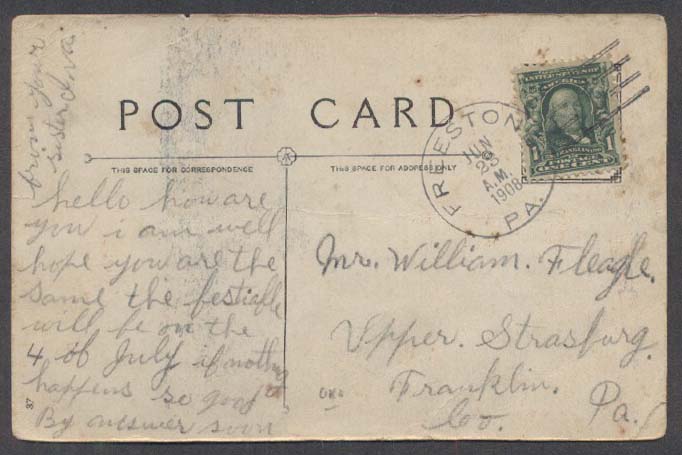 from your
sister Iva.
POST CARD
THIS SPACE FOR CORRESPONDENCE
THIS SPACE FOR ADDRESS ONLY
FREESTON
PA.
JUN
29
A.M.
1908
FRANKLIN
1
hello how are
you i am well
hope you are the
same the festiable
will be on the
4 of July if nothing
happens so good
By answer soon
Mr. William. Fleagle.
Upper. Strasburg.
Franklin.
Co. Pa.
87